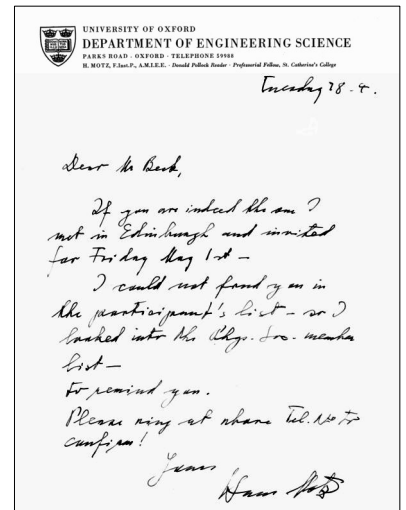 UNIVERSITY OF OXFORD
DEPARTMENT OF ENGINEERING SCIENCE
PARKS ROAD · OXFORD · TELEPHONE 59988
H. MOTZ, F.Inst.P., A.M.I.E.E. · Donald Pollock Reader · Professorial Fellow, St. Catherine's College
Tuesday 28-4.
Dear Mr Beck,
If you are indeed the one I
met in Edinburgh and invited
for Friday May 1st –
I could not find you in
the participant's list – so I
looked into the Phys. Soc. member
list –
to remind you.
Please ring at above Tel. No to
confirm!
Yours
Hans Motz